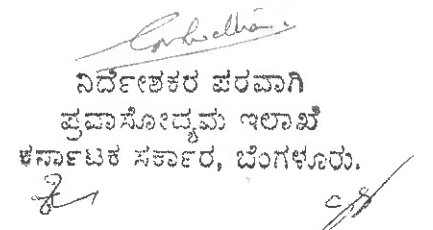 ನಿರ್ದೇಶಕರ ಪರವಾಗಿ
ಪ್ರವಾಸೋದ್ಯಮ ಇಲಾಖೆ
ಕರ್ನಾಟಕ ಸರ್ಕಾರ, ಬೆಂಗಳೂರು.